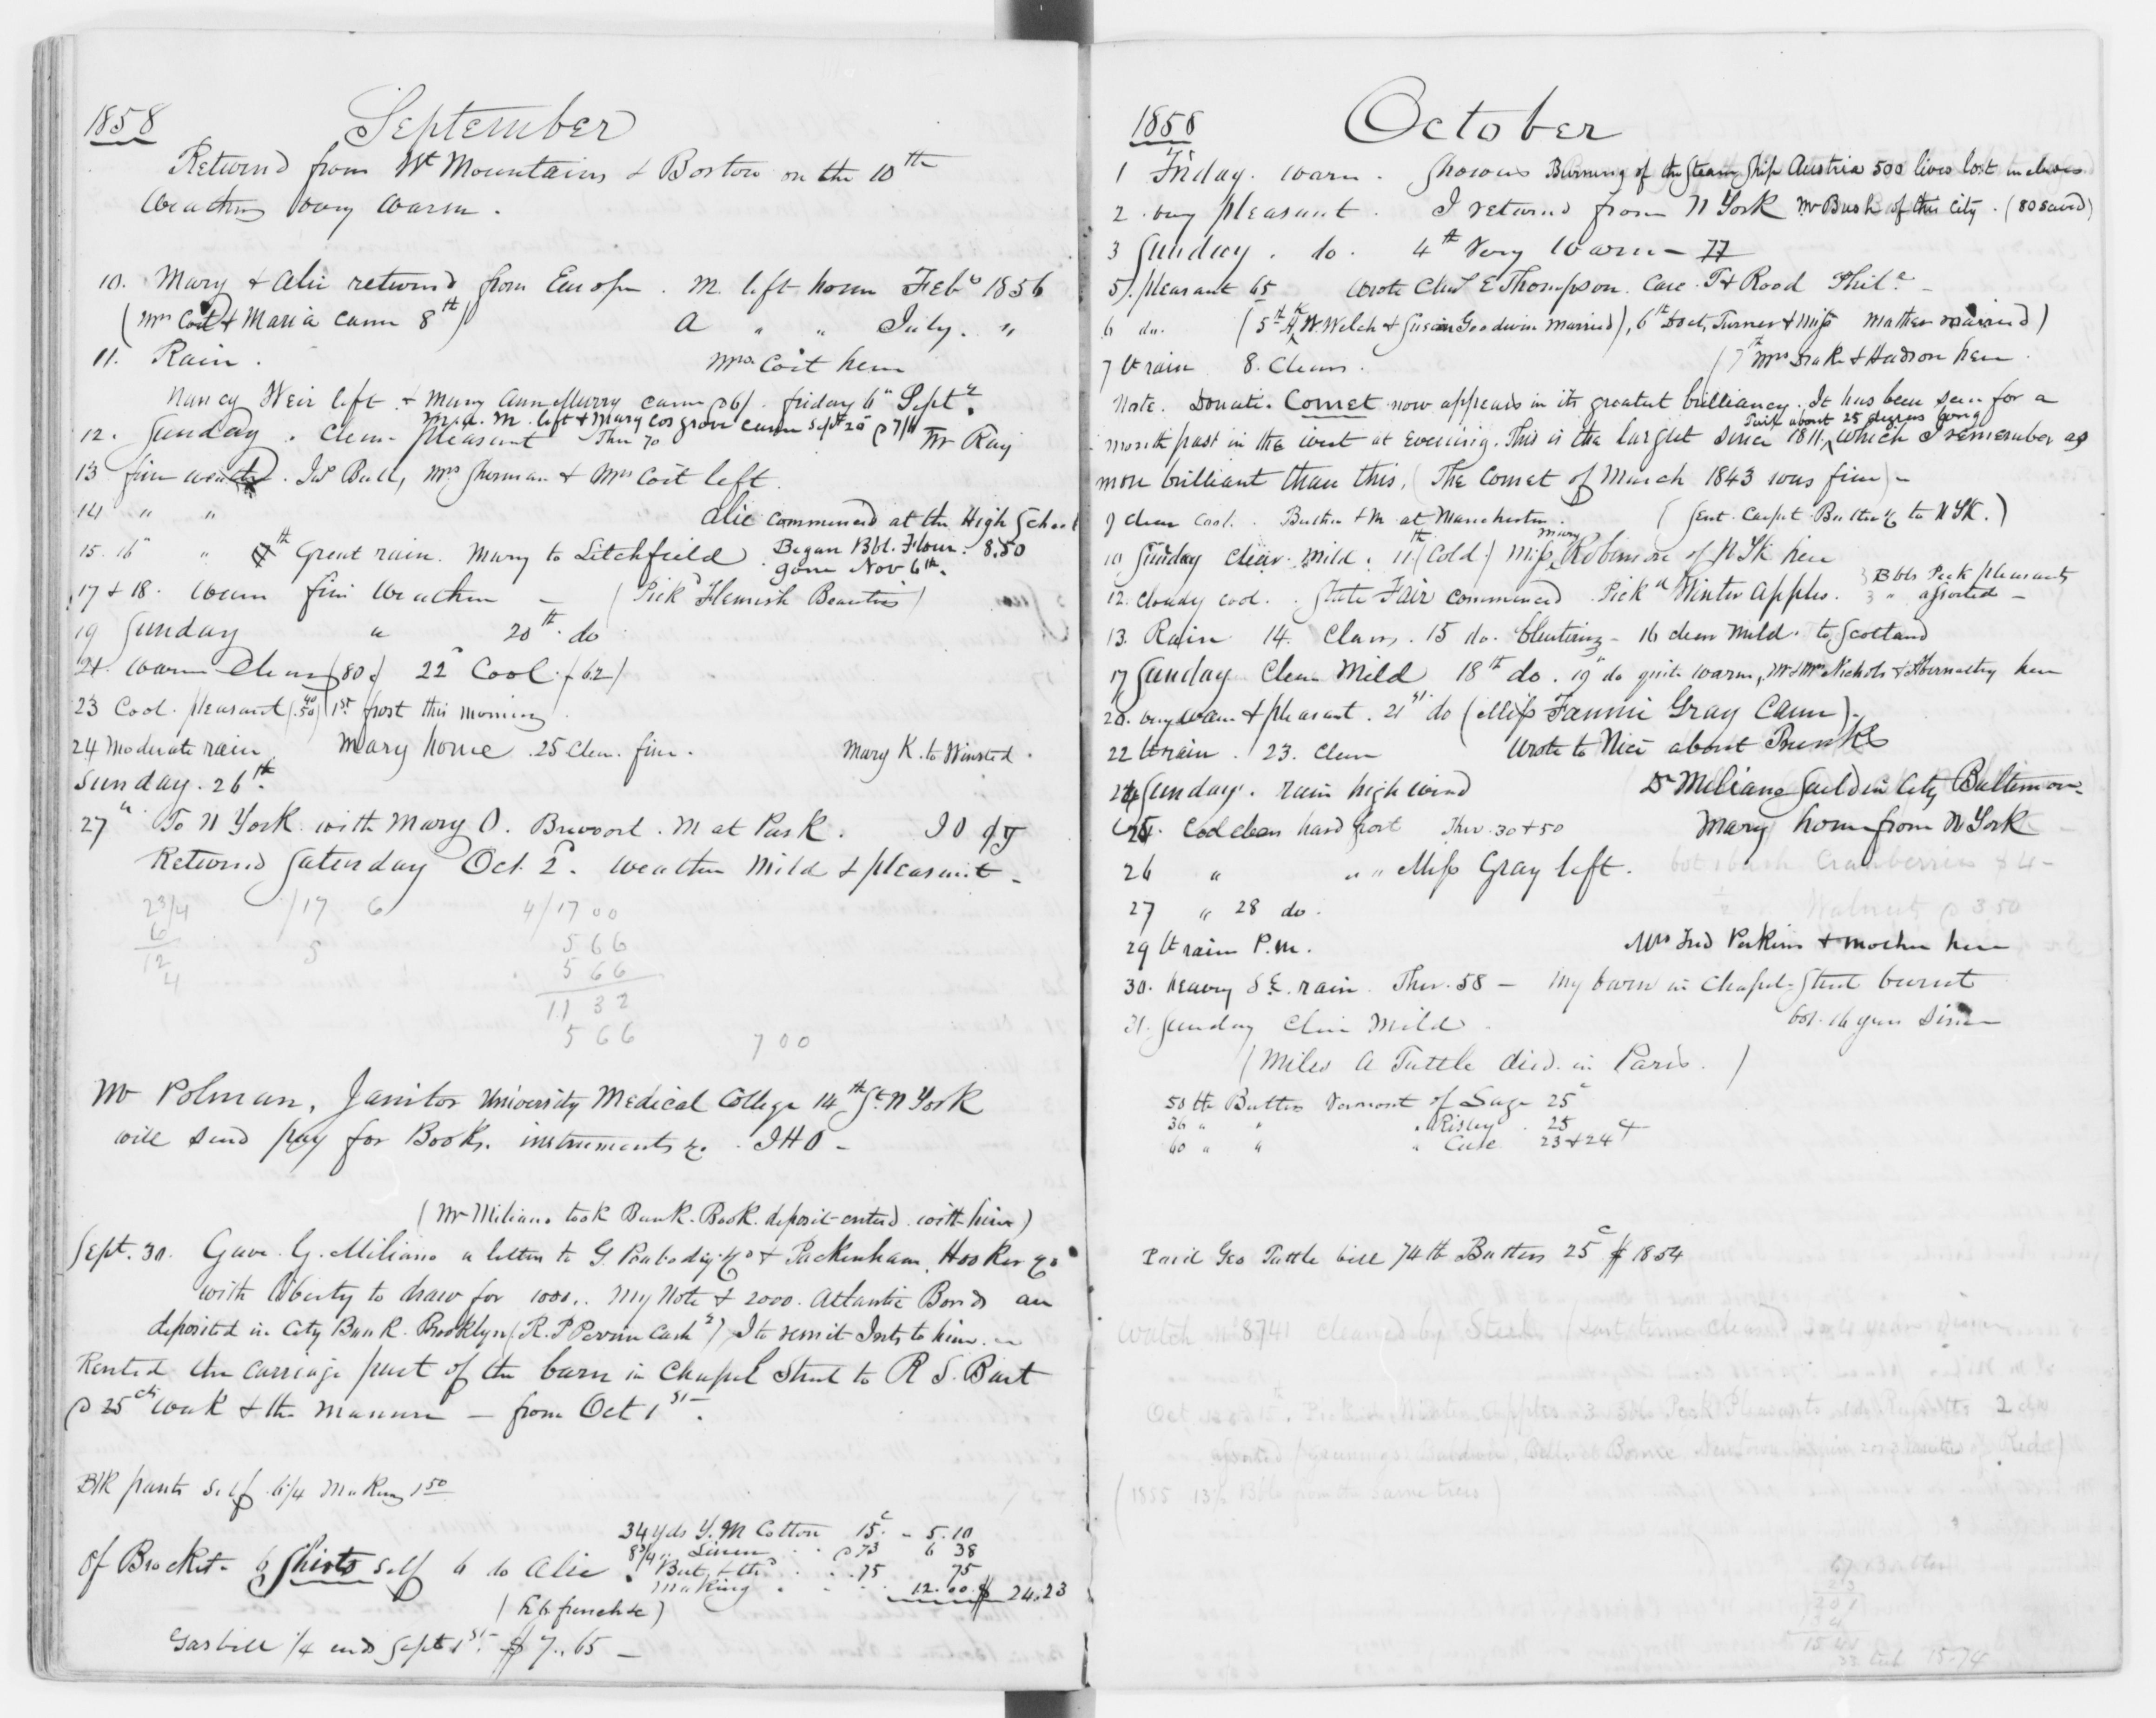 1858 September
Returnd from Wt Mountains & Boston on the 10th
Weather very warm.
10. Mary & Alice returnd from Europe. M. left home Feby 1856
(Mrs Coit & Maria came 8th) A " " July. "
11. Rain. Mrs Coit here
Nancy Weir left & Mary Ann Murry came @ 6/. friday 6" Septr.
M. A. M. left & Mary Cosgrove came Sept 20 @ 7/
12. Sunday. Clear pleasant Ther 70 Mr Ray
13 fine weather. Jas Bull, Mrs Sherman & Mrs Coit left.
14 " " Alice commenced at the High School
15. 16" " th Great rain. Mary to Litchfield. Began Bbl. Flour. 8.50
gone Nov 6th.
17 & 18. warm fine weather — (Pickd Flemish Beauties)
19 Sunday " 20th. do
21. warm clear (80) 22d Cool. (62)
23 Cool. pleasant (40 50) 1st frost this morning
24 Moderate rain Mary home. 25 Clear. fine. Mary K. to Winsted.
Sunday. 26th.
27" To N York with Mary O. Brevoort. M at Park.
Returnd Saturday Oct. 2d. weather mild & pleasant —
23/4 /17 6 4/1700
6 5 566
12 566
4 1132
566 700
Mr Polman, Janitor University Medical College 14th St. N York
will send pay for Books. instruments &c. IHO —
(Mr Miliano took Bank Book. deposit enterd with him)
Sept. 30. Gave G. Miliano a letter to G. Peabody & Co & Packenham, Hooker & Co
with liberty to draw for 1000.. My Note & 2000. Atlantic Bonds are
deposited in City Bank. Brooklyn (R. P Perrin Cashr) I to remit Ints to him.
Rented the carriage part of the barn in Chapel Street to R S. Bart
@ 25cts week & the manure — from Oct 1st.
Blk pants self 6/4 Making 1 50
34 yds Y. M Cotton 15c. - 5.10
8 3/4 " Linen @ 73 6 38
Of Brocket 6 Shirts self 6 do Alice. But. & thd .75 75
Making 12.00. $ 24.23
Gas bill 1/4 ends Sept 1st. $ 7.65 —
1858 October
1 Friday. warm. showers Burning of the Steam Ship Austria 500 lives lost includes
2. very pleasant. I returnd from N York Mr Bush of this City. (80 saved)
3 Sunday. do. 4th Very Warm — 77
5. pleasant 65 Wrote Chas E Thompson. Care. Rood Phila —
6 do. (5th H. W. Welch & Susan Goodwin married), 6th Doct. Turner & Miss Mather married)
7 lt rain 8. Clear. (7th Mrs Drake & Hudson here.
Note. Donati. Comet now appears in its greatest brilliancy. It has been seen for a
Tail about 25 degrees long
month past in the west at evening. This is the largest since 1811. which I remember as
more brilliant than this. (The Comet of March 1843 was fine) —
9 clear cool. at Manchester. (Sent. Carpet to N YK.)
10 Sunday clear. mild. 11th (Cold) Miss Mary Robinson of N Yk here
12. cloudy cool. State Fair commenced. Pickd Winter Apples. 3 Bbls Peck pleasants
3 " assorted —
13. Rain 14. Clear. 15 do. blustering — 16 clear mild. to Scotland
17 Sunday Clear Mild 18th do. 19" do quite warm, Mr & Mrs Nichols & Abernathy here
20. very warm & pleasant. 21st. do (Miss Fannie Gray came).
22 lt rain. 23. Clear Wrote to Nice about Trunks
24 Sunday. rain high wind Dr Meliano Sailed in City Baltimore.
25. Cool clear hard frost Ther. 30 & 50 Mary home from N York
26 " " " Miss Gray left. bot 1 bush Cranberries $ 4 —
27 " 28 do. 1/2 Walnuts @ 3.50
29 lt rain P.M. Mrs Fred Perkins & mother here
30. heavy S E. rain. Ther. 58 — My barn in Chapel Street burnt
31. Sunday Clear Mild. bot. 16 years since
(Miles A Tuttle died in Paris.)
50 lb Butter Vermont of Sage 25c
36 " " " Risley 25
60 " " " Case 23 & 24c
Paid Geo Tuttle bill 74 lb Butter 25c $ 18 54
Watch No 8741 cleaned by Steele (last time cleaned years since
Oct 15. Picked Winter Apples 3 Bbls Peck Pleasants 2 do
assorted Baldwin, Bonne, Newtown pippin
(1855 13 Bbls from the same trees)
15.74